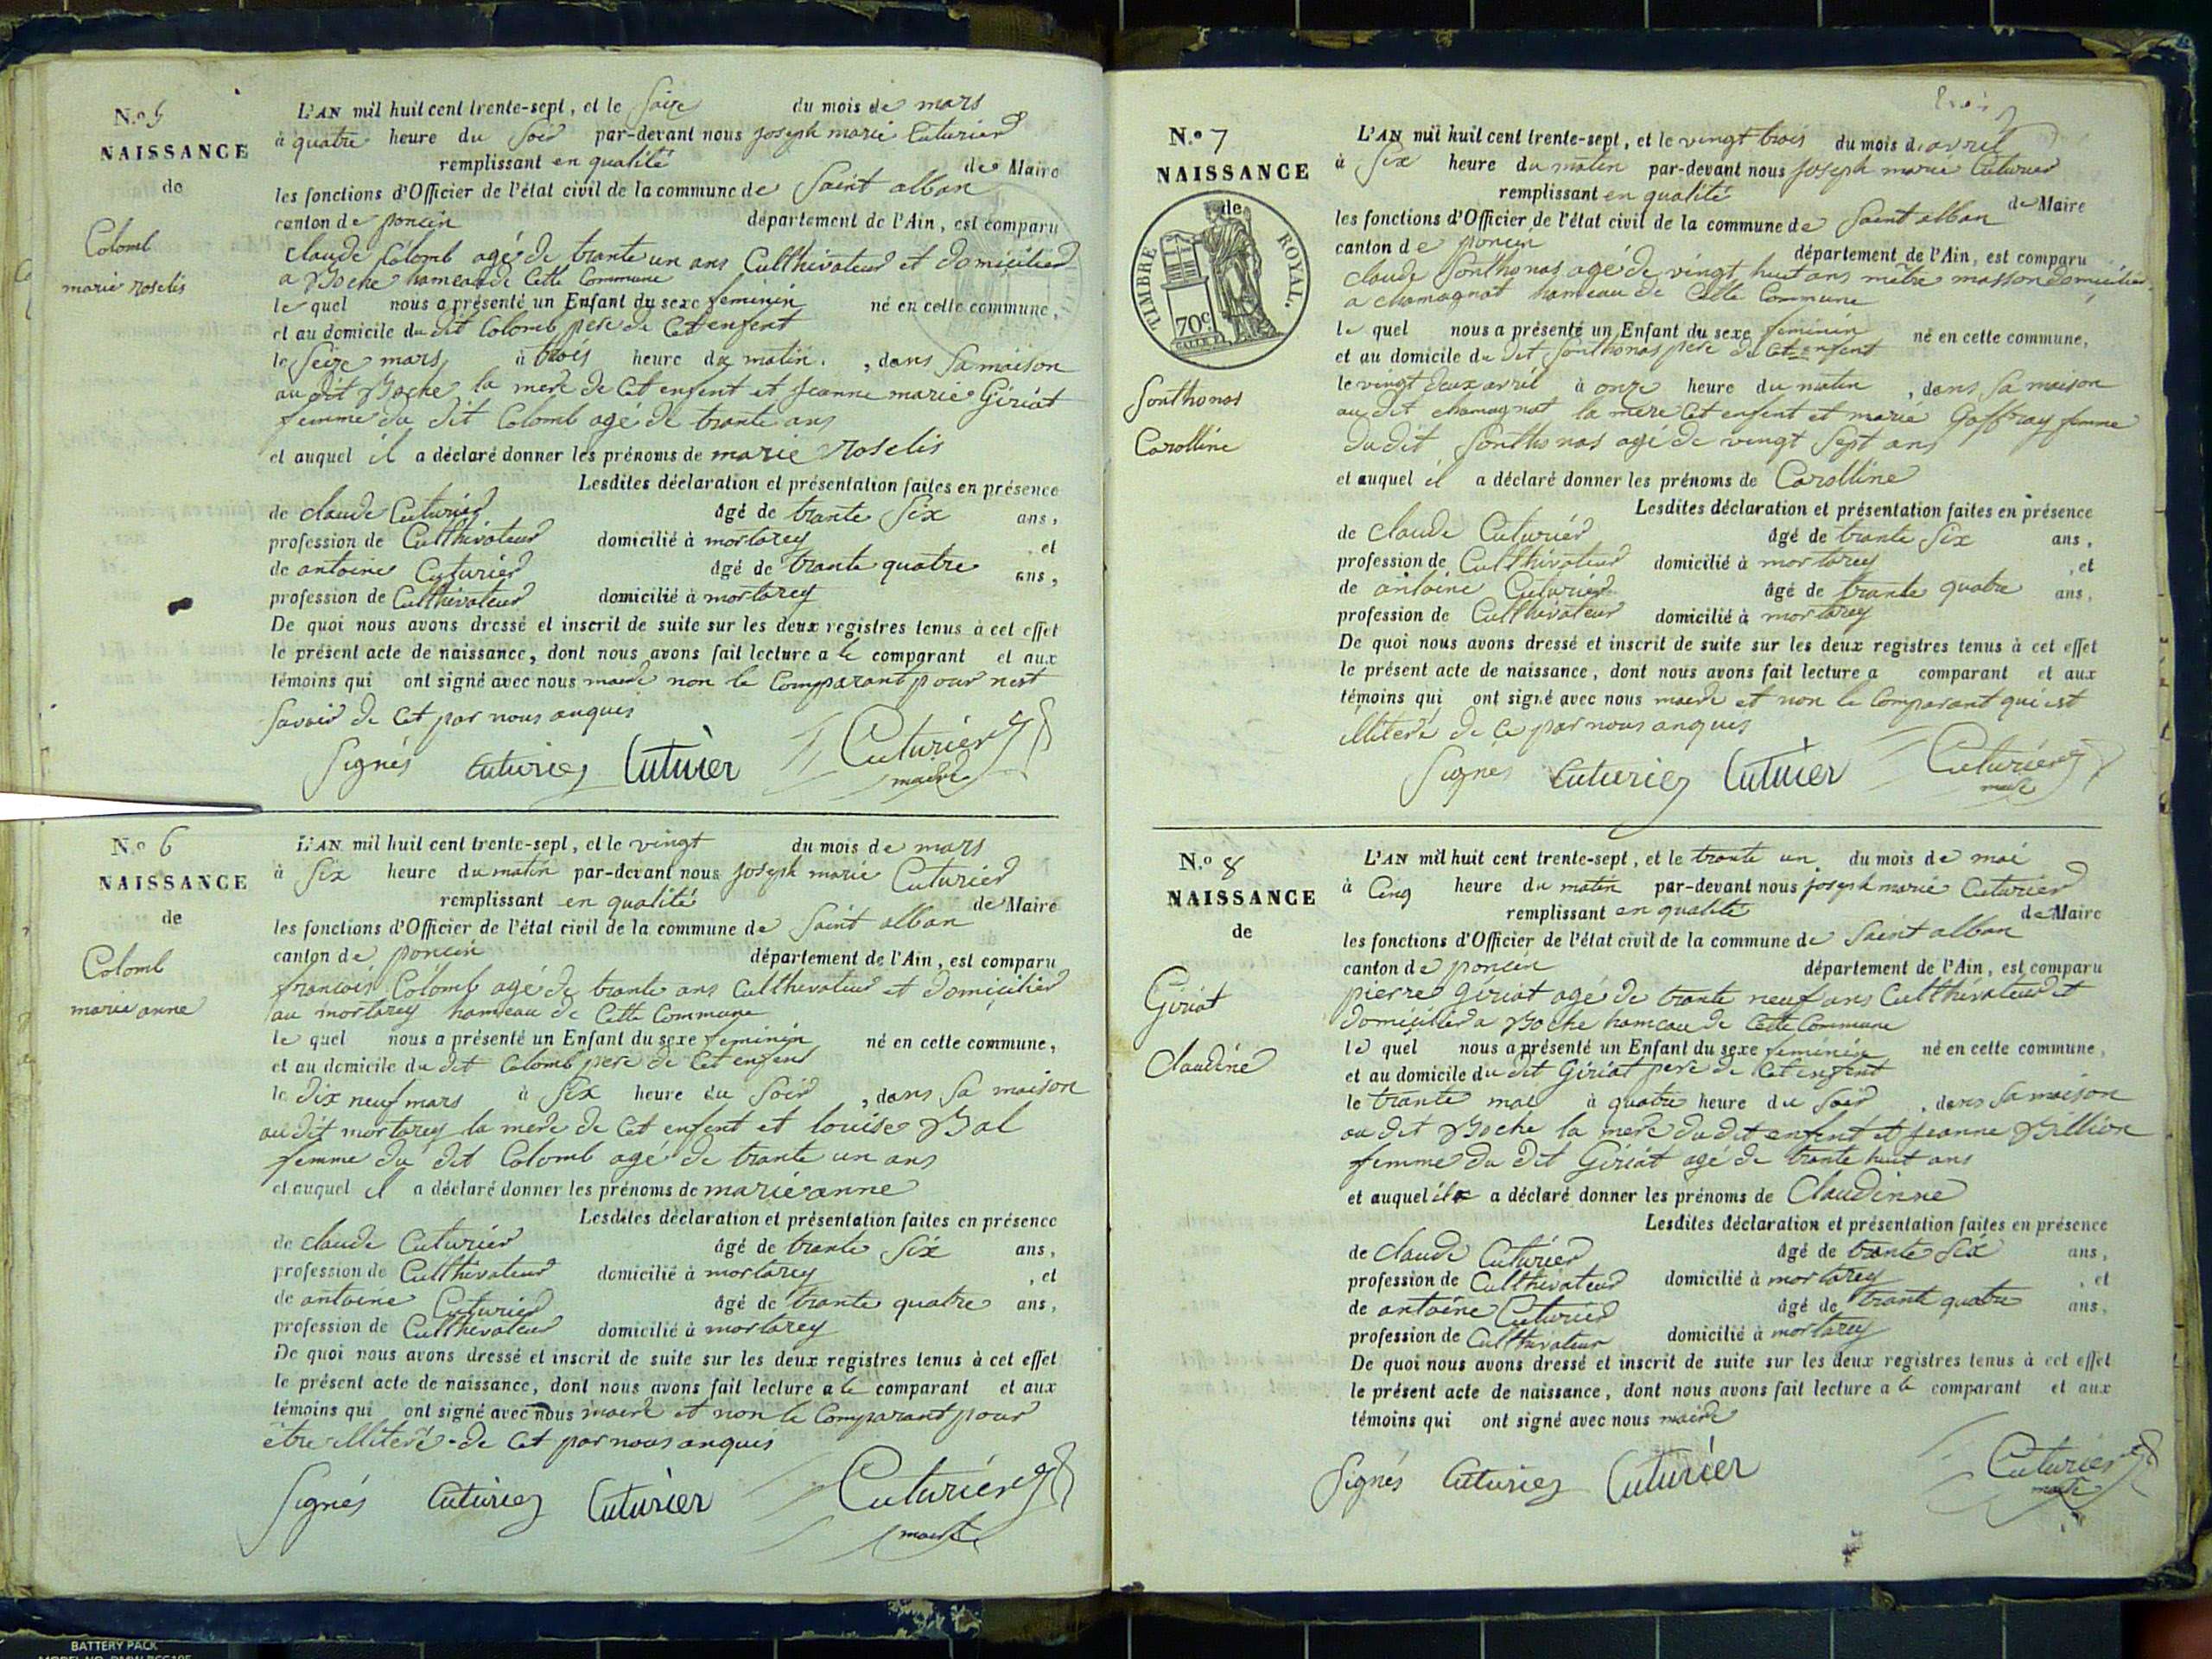 N.o 5
NAISSANCE
de
Colomb
marie roselis
L'AN mil huit cent trente-sept, et le seize du mois de mars
à quatre heure du soir par-devant nous joseph marie Cuturier
remplissant en qualité de Maire
les fonctions d'Officier de l'état civil de la commune de Saint alban
canton de poncin département de l'Ain, est comparu
claude Colomb agé de trante un ans Cullthivateur et domicilier
a Boche hameau de Cette Commune
le quel nous a présenté un Enfant du sexe feminin né en cette commune,
et au domicile du dit Colomb pere de Cet enfent
le Seize mars à trois heure du matin , dans Sa maison
au dit Boche la mere de Cet enfent et jeanne marie Giriat
femme du dit Colomb agé de trante ans
et auquel il a déclaré donner les prénoms de marie roselis
Lesdites déclaration et présentation faites en présence
de claude Cuturier âgé de trante Six ans,
profession de Cullthivateur domicilié à mortarey , et
de antoine Cuturier âgé de trante quatre ans,
profession de Cullthivateur domicilié à mortarey
De quoi nous avons dressé et inscrit de suite sur les deux registres tenus à cet effet
le présent acte de naissance, dont nous avons fait lecture a le comparant et aux
témoins qui ont signé avec nous maire non le Comparant pour nest
Savoir de Cet par nous anquis
Signés Cuturier Cuturier Cuturier
maire
N.o 6
NAISSANCE
de
Colomb
marie anne
L'AN mil huit cent trente-sept, et le vingt du mois de mars
à Six heure du matin par-devant nous joseph marie Cuturier
remplissant en qualité de Maire
les fonctions d'Officier de l'état civil de la commune de Saint alban
canton de poncin département de l'Ain, est comparu
francois Colomb agé de trante ans Cullthivateur et domicilier
au mortarey hameau de Cette Commune
le quel nous a présenté un Enfant du sexe feminin né en cette commune,
et au domicile du dit Colomb pere de Cet enfent
le dix neuf mars à Six heure du Soir , dans Sa maison
au dit mortarey la mere de Cet enfent et louise Bal
femme du dit Colomb agé de trante un ans
et auquel il a déclaré donner les prénoms de marie anne
Lesdites déclaration et présentation faites en présence
de claude Cuturier âgé de trante Six ans,
profession de Cullthivateur domicilié à mortarey , et
de antoine Cuturier âgé de trante quatre ans,
profession de Cullthivateur domicilié à mortarey
De quoi nous avons dressé et inscrit de suite sur les deux registres tenus à cet effet
le présent acte de naissance, dont nous avons fait lecture a le comparant et aux
témoins qui ont signé avec nous maire et non le Comparant pour
être illiteré de Cet par nous anquis
Signés Cuturier Cuturier Cuturier
maire
N.o 7
NAISSANCE
de
TIMBRE ROYAL.
70c
Sonthonas
Carolline
L'AN mil huit cent trente-sept, et le vingt trois du mois d'avril
à Six heure du matin par-devant nous joseph marie Cuturier
remplissant en qualité de Maire
les fonctions d'Officier de l'état civil de la commune de Saint alban
canton de poncin département de l'Ain, est comparu
claude Sonthonas agé de vingt huit ans mêtre masson domicilier
a chamagnat hameau de Cette Commune
le quel nous a présenté un Enfant du sexe feminin né en cette commune,
et au domicile du dit Sonthonas pere de Cet enfent
le vingt deux avril à onze heure du matin , dans Sa maison
au dit chamagnat la mere Cet enfent et marie Goffray femme
du dit Sonthonas agé de vingt Sept ans
et auquel il a déclaré donner les prénoms de Carolline
Lesdites déclaration et présentation faites en présence
de claude Cuturier âgé de trante Six ans,
profession de Cullthivateur domicilié à mortarey , et
de antoine Cuturier âgé de trante quatre ans,
profession de Cullthivateur domicilié à mortarey
De quoi nous avons dressé et inscrit de suite sur les deux registres tenus à cet effet
le présent acte de naissance, dont nous avons fait lecture a comparant et aux
témoins qui ont signé avec nous maire et non le Comparant qui est
illiteré de Ce par nous anquis
Signés Cuturier Cuturier Cuturier
maire
N.o 8
NAISSANCE
de
Giriat
Claudine
L'AN mil huit cent trente-sept, et le trante un du mois de mai
à Cinq heure du matin par-devant nous joseph marie Cuturier
remplissant en qualité de Maire
les fonctions d'Officier de l'état civil de la commune de Saint alban
canton de poncin département de l'Ain, est comparu
pierre Giriat agé de trante neuf ans Cullthivateur et
domicilier a Boche hameau de Cette Commune
le quel nous a présenté un Enfant du sexe feminin né en cette commune,
et au domicile du dit Giriat pere de Cet enfent
le trante mai à quatre heure du Soir , dans Sa maison
au dit Boche la mere du dit enfent et jeanne Billion
femme du dit Giriat agé de trante huit ans
et auquel il a déclaré donner les prénoms de Claudinne
Lesdites déclaration et présentation faites en présence
de claude Cuturier âgé de trante Six ans,
profession de Cullthivateur domicilié à mortarey , et
de antoine Cuturier âgé de trante quatre ans,
profession de Cullthivateur domicilié à mortarey
De quoi nous avons dressé et inscrit de suite sur les deux registres tenus à cet effet
le présent acte de naissance, dont nous avons fait lecture a le comparant et aux
témoins qui ont signé avec nous maire
Signés Cuturier Cuturier Cuturier
maire
BATTERY PACK